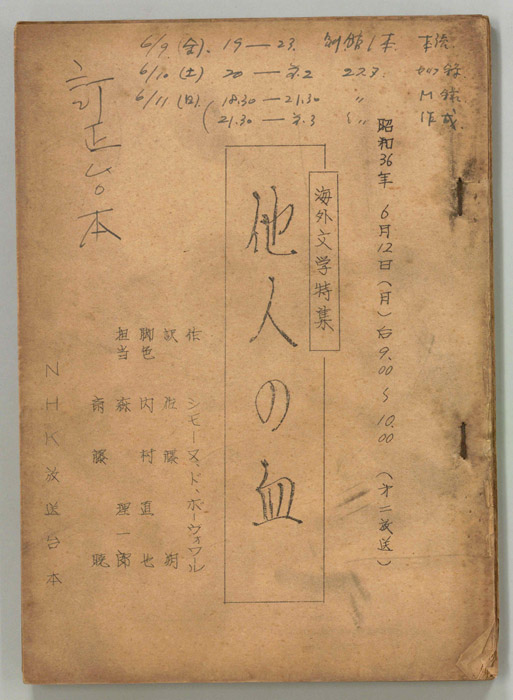 6/9 (金) 19 — 23. 別館1本. 本読
6/10 (土) 20 — 第2 223
6/11 (日) 18.30 — 21.30 〃 M録
(21.30 — 第3 〃 作成
訂正台本
昭和36年 6月12日(月)后9.00~10.00 (第二放送)
海外文学特集
他人の血
作 シモーヌ・ド・ボーヴォワル
訳 佐藤 朔
脚色 内村直也
担当 森 理一郎
斎藤 暁
NHK放送台本